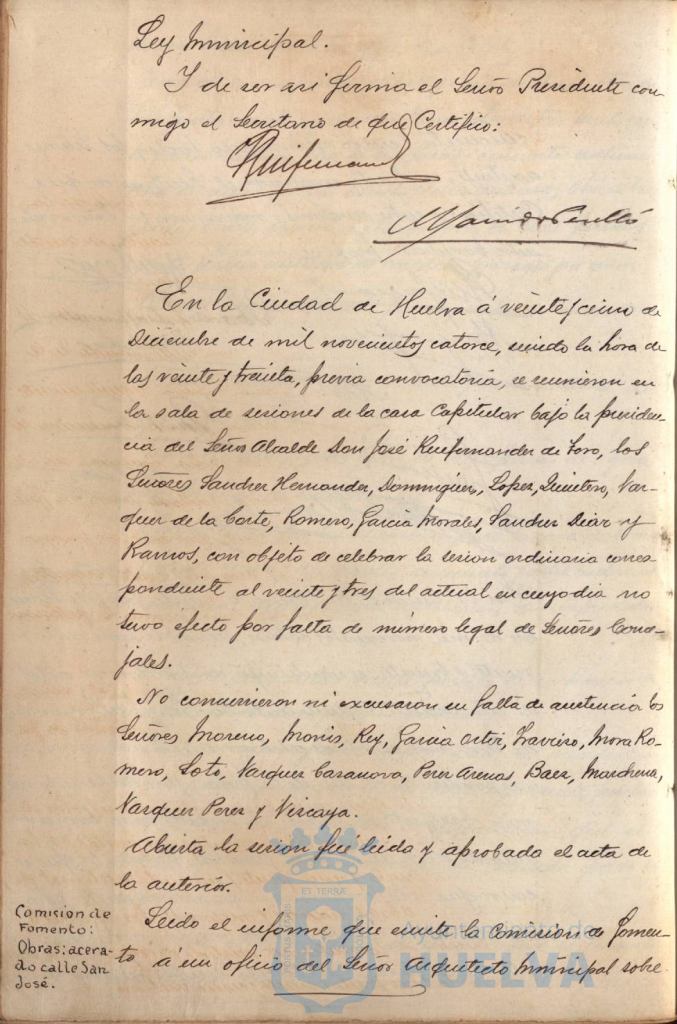 Ley Municipal.
Y de ser asi firma el Señor Presidente con-
migo el Secretario de que Certifico:
En la Ciudad de Huelva á veinte y cinco de
Diciembre de mil novecientos catorce, siendo la hora de
las veinte y treinta, previa convocatoria, se reunieron en
la sala de sesiones de la casa Capitular bajo la presiden-
cia del Señor Alcalde Don José Ruifernandez de Toro, los
Señores Sanchez Hernandez, Dominguez, Lopez, Quintero, Vaz-
quez de la Corte, Romero, Garcia Morales, Sanchez Diaz y
Ramos, con objeto de celebrar la sesion ordinaria corres-
pondiente al veinte y tres del actual en cuyo dia no
tuvo efecto por falta de número legal de Señores Conce-
jales.
No concurrieron ni excusaron su falta de asistencia los
Señores Moreno, Monis, Rey, Garcia Ortiz, Travieso, Mora Ro-
mero, Soto, Vazquez Casanova, Perez Arenas, Baez, Marchena,
Vazquez Perez y Viscaya.
Abierta la sesion fué leida y aprobada el acta de
la anterior.
Comision de
Fomento:
Obras: acera-
do calle San
José.
Leido el informe que emite la Comision de Fomen-
to á un oficio del Señor Arquitecto Municipal sobre
Ayuntamiento de
HUELVA